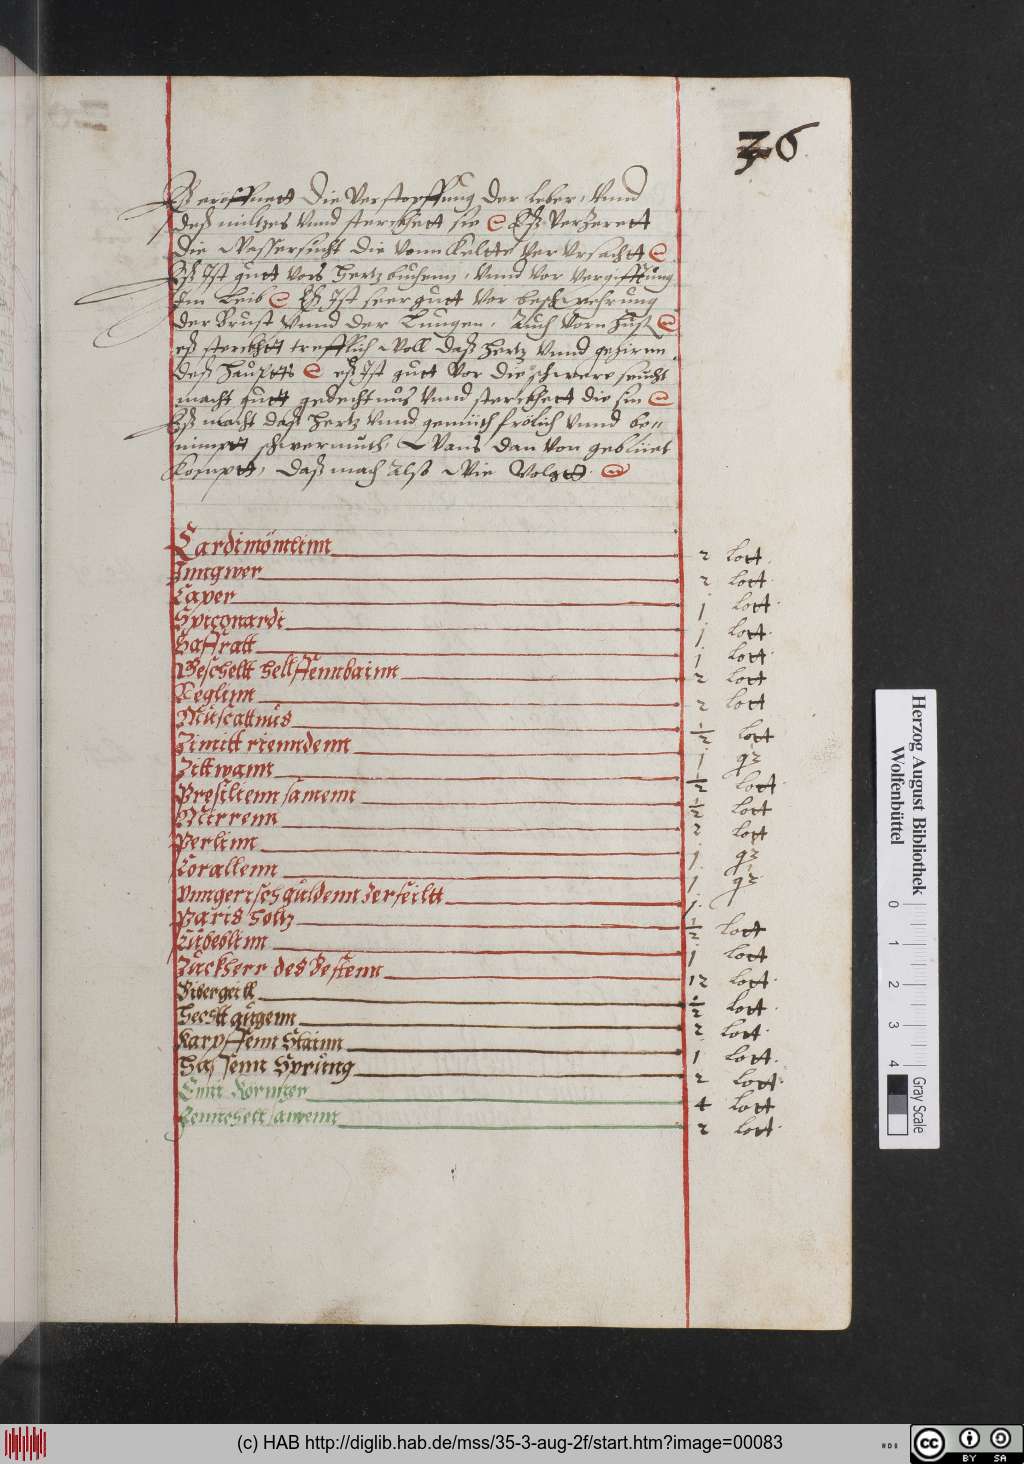 36
Es eröffnett die verstopffung der leber, vnnd
deß miltzes vnnd sterckhett sie Eß verzerett
die wassersucht die vonn keltte her vrsacht
Eß Ist guet vors hertz buchenn, vnnd vor vergifftung
Im Leib Eß Ist seer guet vor beschwehrung
der Brust vnnd der Lungen, Auch vorn hust
eß sterckhett trefflich woll daß hertz vnnd gehirnn
deß haupts eß Ist guet vor die schwere seucht
macht guett gedechtnus vnnd sterckhett die sin
Eß macht daß hertz vnnd gemüeth frölich vnnd be=
nimpt schwermueth, wans dan von geblüet
kompt, daß mach alß wie volgtt
Cardimömlinn 2 Lott
Jungwer 2 Lott
Caper j Lott
Spiconardi j Lott
Saffratt j Lott
Geschellt hellffennbainn 2 Lott
Neglinn 2 Lott
Muscattnus ½ Lott
Zimitt rienndenn j qz
Zittwann ½ Lott
Presilienn samenn ½ Lott
Mirrenn 2 Lott
Perlinn j qz
Corallenn j qz
Vnngerisch guldenn Zerfeiltt j
Paris holtz ½ Lott
Cubeblinn j Lott
Zuckherr des Bestenn 12 Lott
Bibergeill ½ Lott
Hechtt augenn 2 Lott
Karpffenn Stainn 1 Lott
Hassenn Sprung 2 Lott
Enni 4 Lott
Fennchell samenn 2 Lott
Herzog August Bibliothek
Wolfenbüttel
0 1 2 3 4
Gray Scale
(c) HAB http://diglib.hab.de/mss/35-3-aug-2f/start.htm?image=00083
cc BY SA